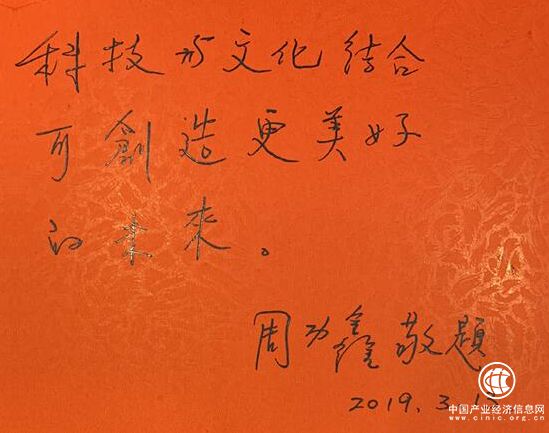 科技与文化結合
可創造更美好
的未來。
周功鑫敬題
2019.3.12
中国产业经济信息网
www.cinic.org.cn